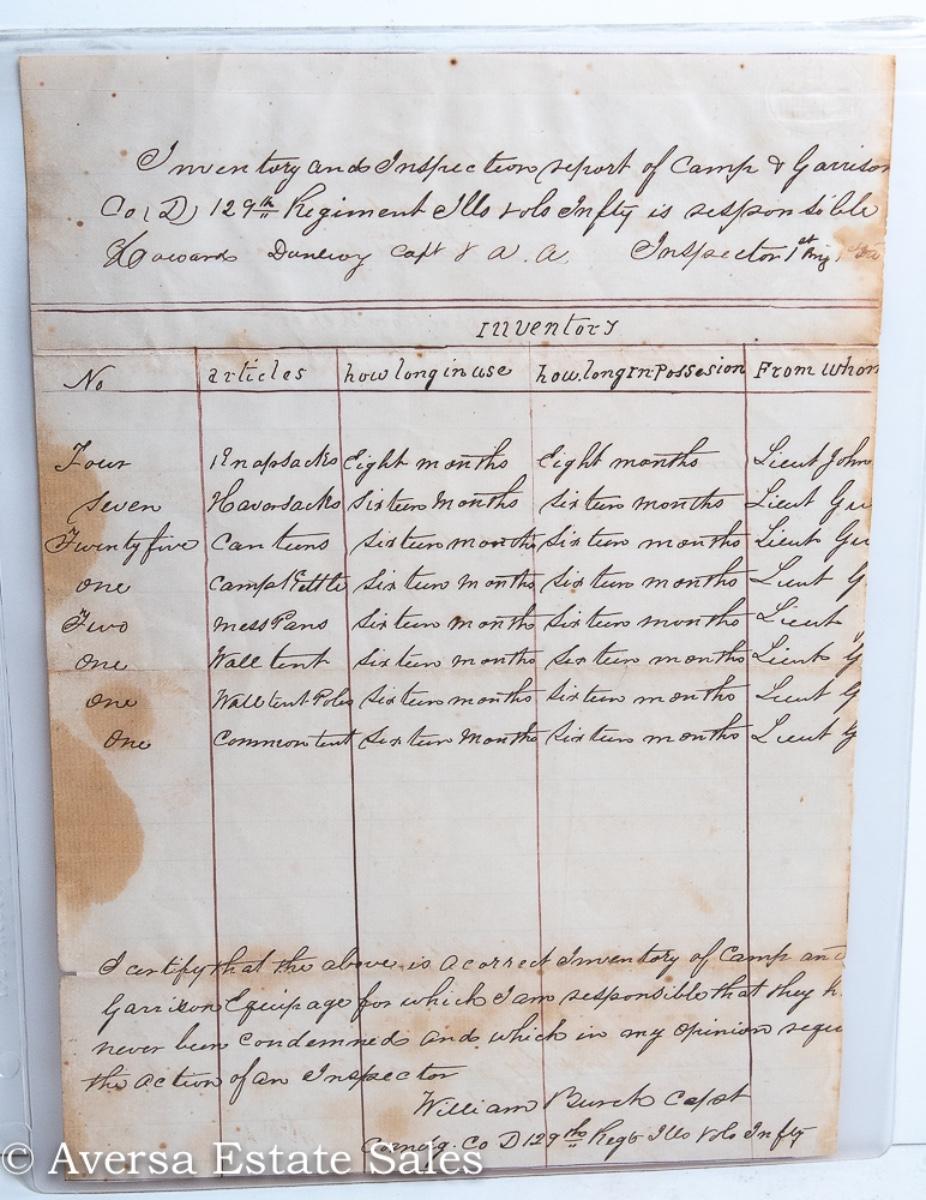 Inventory and Inspection report of Camp & Garrison
Co (D) 129th Regiment Ills vols Infty is responsible
Howard Dunlevy Capt & A. A. Inspector 1st Brig 1st
Inventory
No articles how long in use how long In Possesion From whom
Four Knapsacks Eight months Eight months Lieut John
Seven Haversacks Sixteen Months Sixteen months Lieut Gu
Twenty five Canteens Sixteen months Sixteen months Lieut Gu
One Camp Kettle Sixteen months Sixteen months Lieut G
Two mess Pans Sixteen months Sixteen months Lieut
One Wall tent Sixteen months Sixteen months Lieut G
One Wall tent Poles Sixteen months Sixteen months Lieut G
One Common tent Sixteen Months Sixteen months Lieut G
I certify that the above is a correct Inventory of Camp and
Garrison Equipage for which I am responsible that they h
never been condemned and which in my opinion requ
the action of an Inspector
William Burch Capt
Comdg. Co D 129th Regt Ills vols Infty
© Aversa Estate Sales